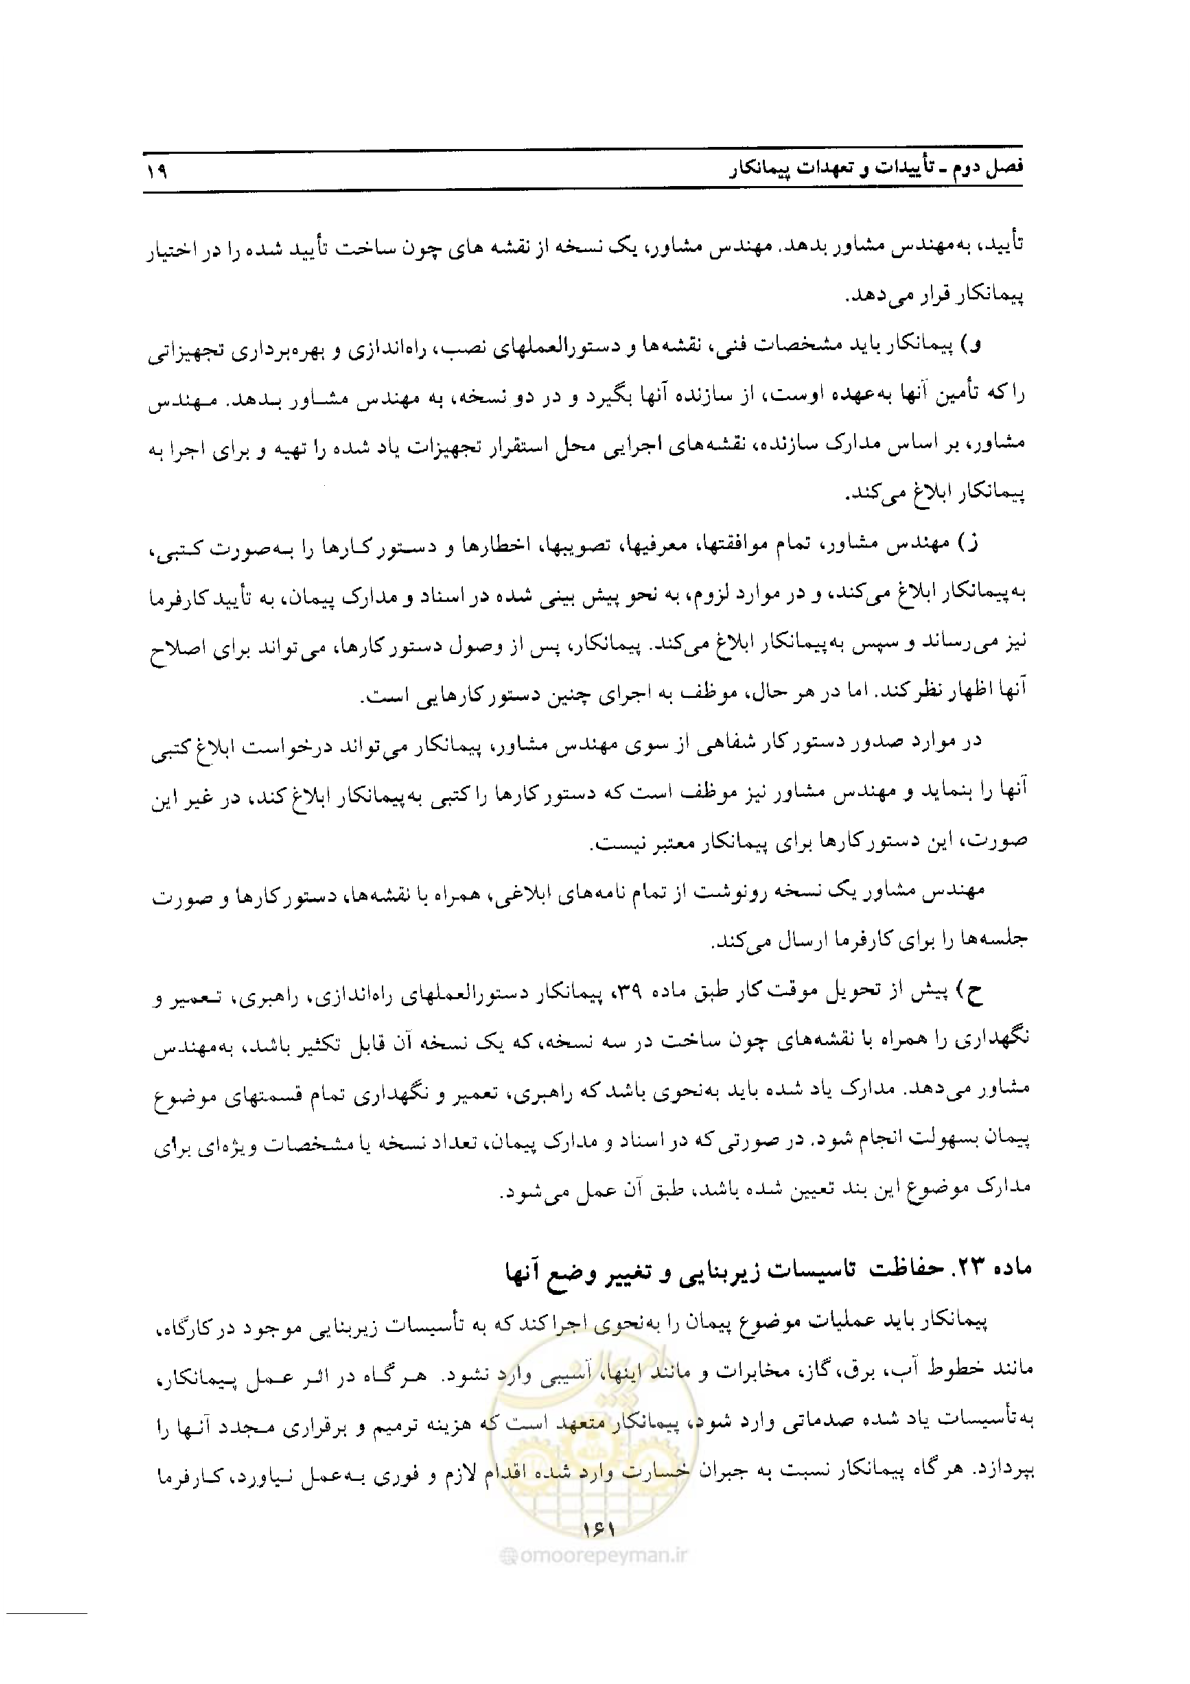 فصل دوم ـ تأییدات و تعهدات پیمانکار ۱۹
تأیید، به‌مهندس مشاور بدهد. مهندس مشاور، یک نسخه از نقشه های چون ساخت تأیید شده را در اختیار
پیمانکار قرار می‌دهد.
و) پیمانکار باید مشخصات فنی، نقشه‌ها و دستورالعملهای نصب، راه‌اندازی و بهره‌برداری تجهیزاتی
را که تأمین آنها به‌عهده اوست، از سازنده آنها بگیرد و در دو نسخه، به مهندس مشاور بدهد. مهندس
مشاور، بر اساس مدارک سازنده، نقشه‌های اجرایی محل استقرار تجهیزات یاد شده را تهیه و برای اجرا به
پیمانکار ابلاغ می‌کند.
ز) مهندس مشاور، تمام موافقتها، معرفیها، تصویبها، اخطارها و دستور کارها را به‌صورت کتبی،
به‌پیمانکار ابلاغ می‌کند، و در موارد لزوم، به نحو پیش بینی شده در اسناد و مدارک پیمان، به تأیید کارفرما
نیز می‌رساند و سپس به‌پیمانکار ابلاغ می‌کند. پیمانکار، پس از وصول دستور کارها، می‌تواند برای اصلاح
آنها اظهار نظر کند. اما در هر حال، موظف به اجرای چنین دستور کارهایی است.
در موارد صدور دستور کار شفاهی از سوی مهندس مشاور، پیمانکار می‌تواند درخواست ابلاغ کتبی
آنها را بنماید و مهندس مشاور نیز موظف است که دستور کارها را کتبی به‌پیمانکار ابلاغ کند، در غیر این
صورت، این دستور کارها برای پیمانکار معتبر نیست.
مهندس مشاور یک نسخه رونوشت از تمام نامه‌های ابلاغی، همراه با نقشه‌ها، دستور کارها و صورت
جلسه‌ها را برای کارفرما ارسال می‌کند.
ح) پیش از تحویل موقت کار طبق ماده ۳۹، پیمانکار دستورالعملهای راه‌اندازی، راهبری، تعمیر و
نگهداری را همراه با نقشه‌های چون ساخت در سه نسخه، که یک نسخه آن قابل تکثیر باشد، به‌مهندس
مشاور می‌دهد. مدارک یاد شده باید به‌نحوی باشد که راهبری، تعمیر و نگهداری تمام قسمتهای موضوع
پیمان بسهولت انجام شود. در صورتی که در اسناد و مدارک پیمان، تعداد نسخه یا مشخصات ویژه‌ای برای
مدارک موضوع این بند تعیین شده باشد، طبق آن عمل می‌شود.
ماده ۲۳. حفاظت تاسیسات زیربنایی و تغییر وضع آنها
پیمانکار باید عملیات موضوع پیمان را به‌نحوی اجرا کند که به تأسیسات زیربنایی موجود در کارگاه،
مانند خطوط آب، برق، گاز، مخابرات و مانند اینها، آسیبی وارد نشود. هر گاه در اثر عمل پیمانکار،
به‌تأسیسات یاد شده صدماتی وارد شود، پیمانکار متعهد است که هزینه ترمیم و برقراری مجدد آنها را
بپردازد. هر گاه پیمانکار نسبت به جبران خسارت وارد شده اقدام لازم و فوری به‌عمل نیاورد، کارفرما
۱۶۱
امور پیمان
@omoorepeyman.ir